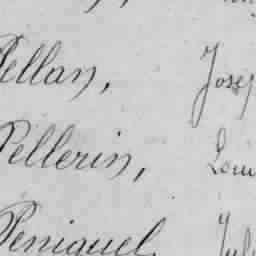 Pellan, Josep
Pellerin, Loui
Peniguel, Jul